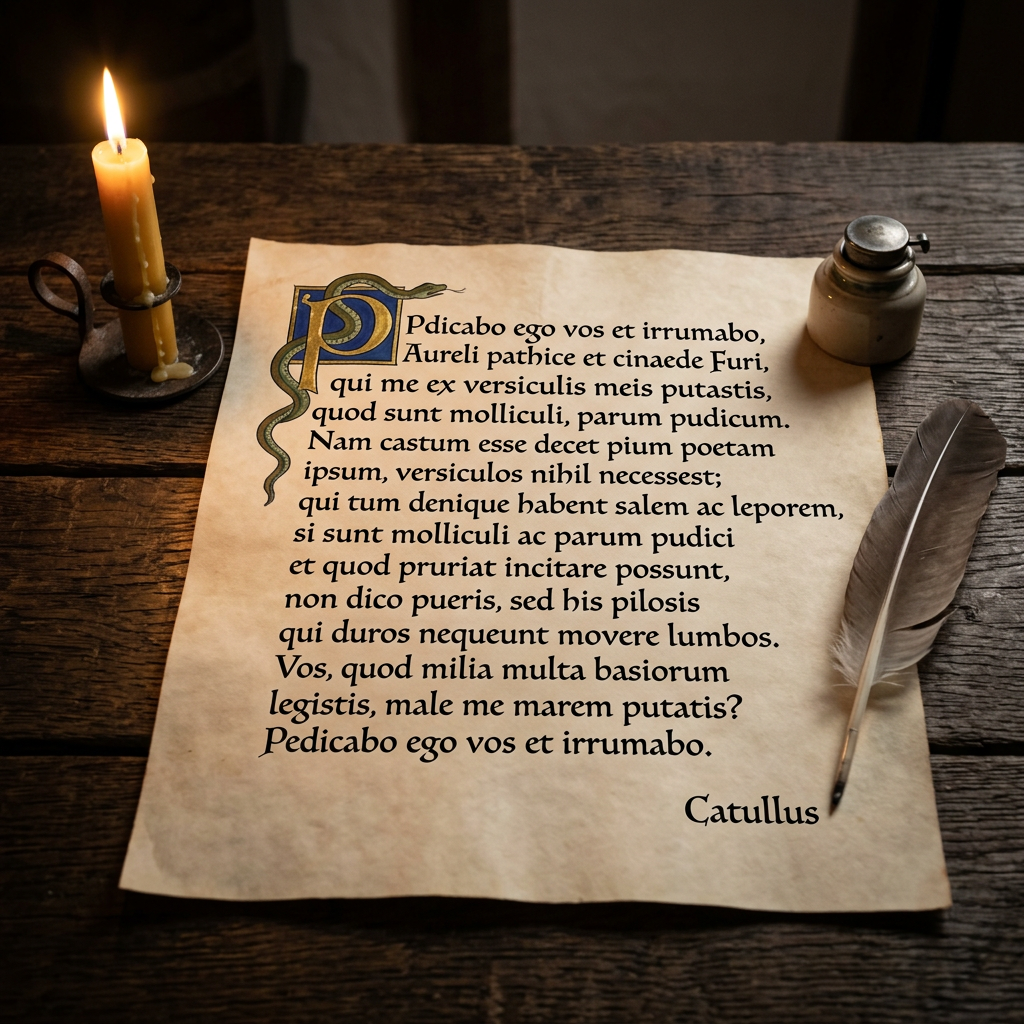 P Pdicabo ego vos et irrumabo,
Aureli pathice et cinaede Furi,
qui me ex versiculis meis putastis,
quod sunt molliculi, parum pudicum.
Nam castum esse decet pium poetam
ipsum, versiculos nihil necessest;
qui tum denique habent salem ac leporem,
si sunt molliculi ac parum pudici
et quod pruriat incitare possunt,
non dico pueris, sed his pilosis
qui duros nequeunt movere lumbos.
Vos, quod milia multa basiorum
legistis, male me marem putatis?
Pedicabo ego vos et irrumabo.
Catullus